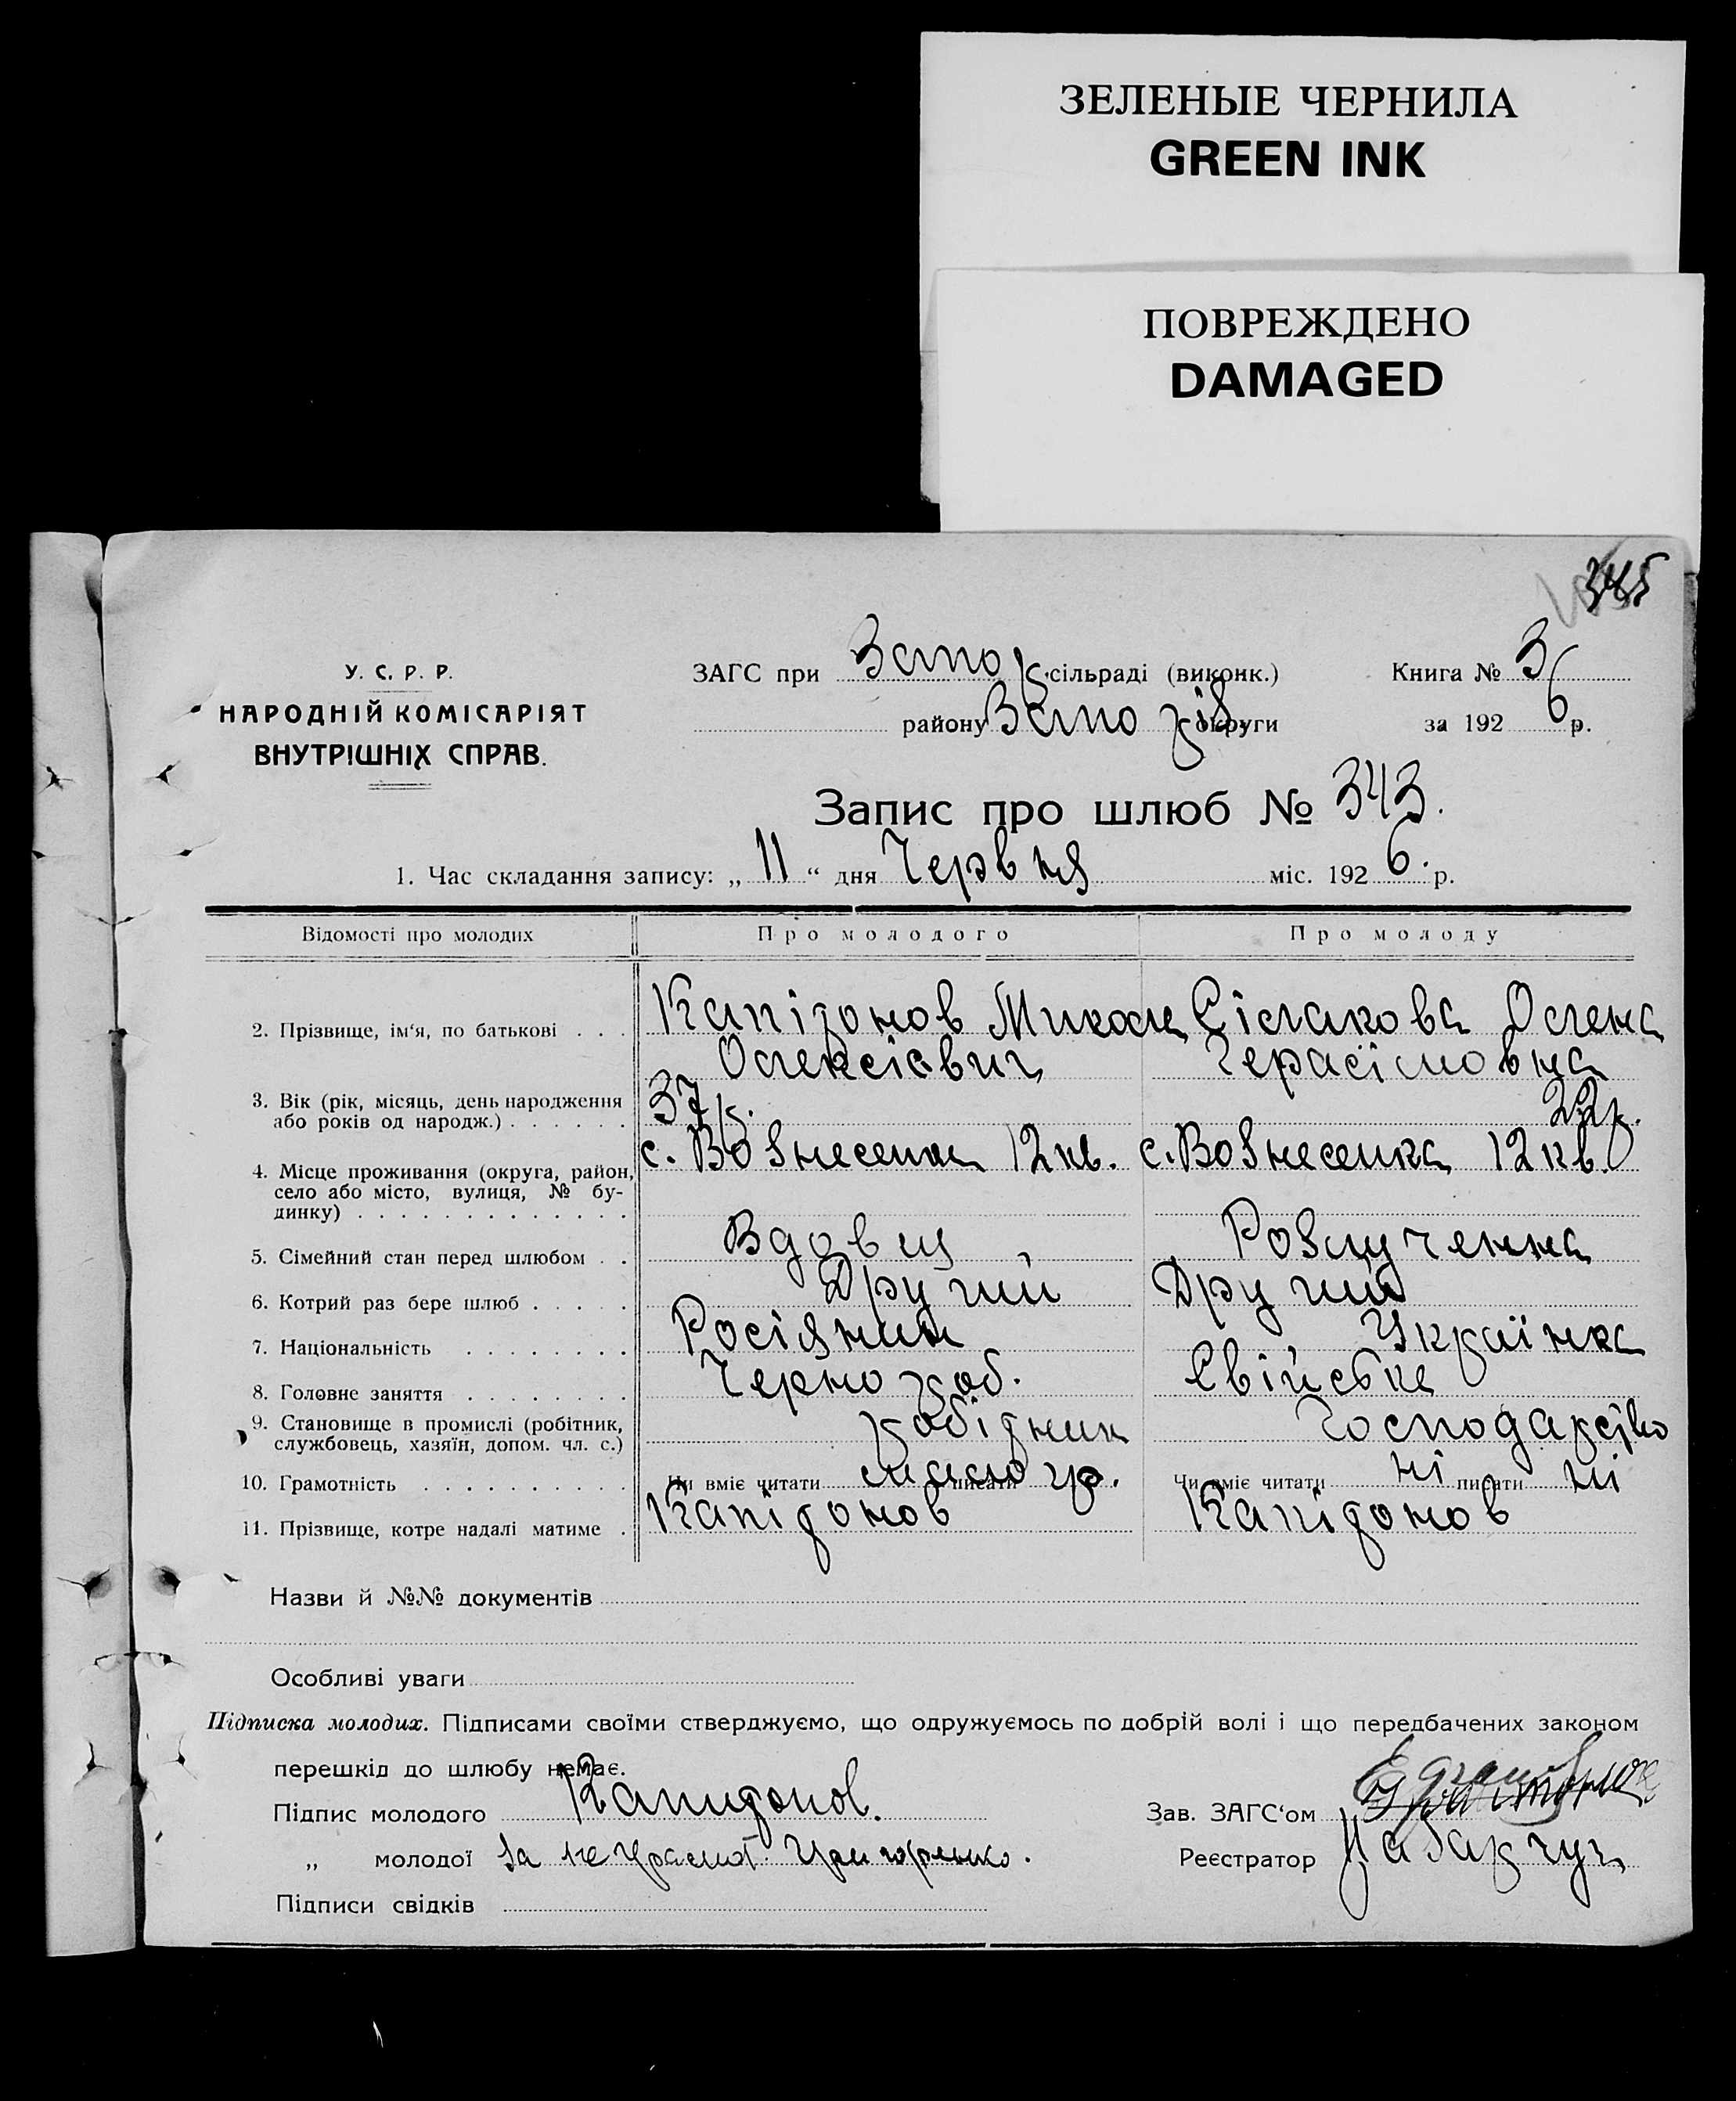 ЗЕЛЕНЫЕ ЧЕРНИЛА
GREEN INK
ПОВРЕЖДЕНО
DAMAGED
345
У. С. Р. Р.
НАРОДНІЙ КОМІСАРІЯТ
ВНУТРІШНІХ СПРАВ.
ЗАГС при Запор. сільраді (виконк.)
району Запоріз. округи
Книга № 3
за 1926 р.
Запис про шлюб № 343.
1. Час складання запису: „11“ дня Червня міс. 1926. р.
Відомості про молодих Про молодого Про молоду
2. Прізвище, ім'я, по батькові . . . Капідонов Микола Сілакова Олена
Олексієвич Герасімовна
3. Вік (рік, місяць, день народження 37 р. 22 р.
або років од народж.) . . . . . .
4. Місце проживання (округа, район, с. Вознесенка 12 кв. с. Вознесенка 12 кв.
село або місто, вулиця, № бу-
динку) . . . . . . . . . . . . .
5. Сімейний стан перед шлюбом . . Вдовец Розлученна
6. Котрий раз бере шлюб . . . . . Другий Другий
7. Національність . . . . . . . . Росіянин Українка
8. Головне заняття . . . . . . . . Чернороб. Свійське
9. Становище в промислі (робітник, робідник Господарство
службовець, хазяїн, допом. чл. с.)
10. Грамотність . . . . . . . . . . Чи вміє читати малогр. писати Чи вміє читати ні писати ні
11. Прізвище, котре надалі матиме . Капідонов Капідонов
Назви й №№ документів
Особливі уваги
Підписка молодих. Підписами своїми стверджуємо, що одружуємось по добрій волі і що передбачених законом
перешкід до шлюбу немає.
Підпис молодого Капидонов. Зав. ЗАГС'ом
„ молодої За неграмот. Григоренко. Реєстратор
Підписи свідків